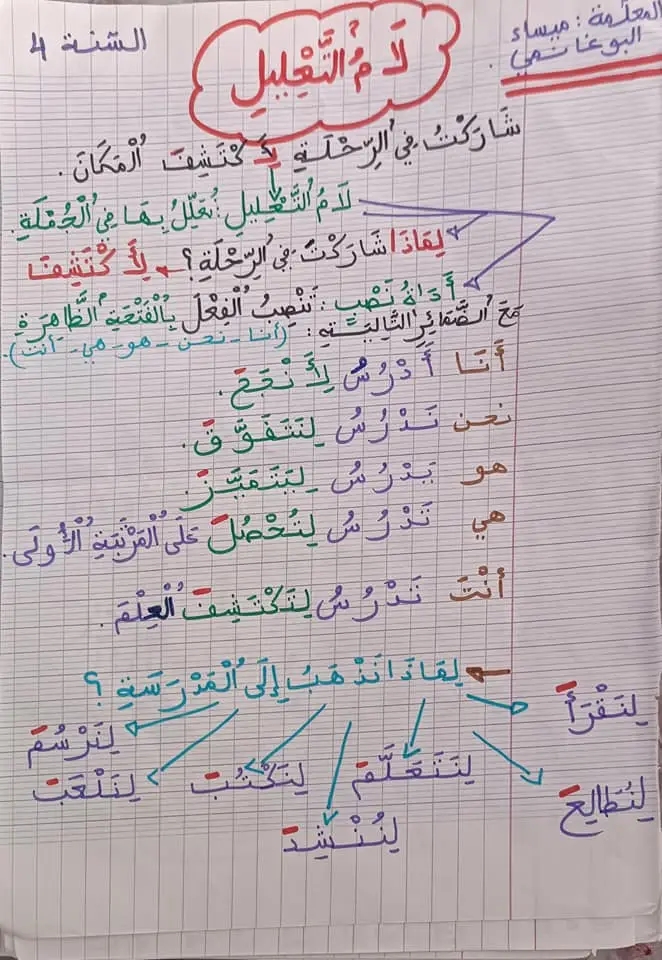 المعلّمة : ميساء
البوغانمي
السّنة 4
لَامُ التَّعْلِيلِ
شَارَكْتُ فِي الرِّحْلَةِ لِأَكْتَشِفَ الْمَكَانَ .
لَامُ التَّعْلِيلِ : نُعَلِّلُ بِهَا فِي الْجُمْلَةِ.
لِمَاذَا شَارَكْتَ فِي الرِّحْلَةِ ؟ لِأَكْتَشِفَ
أَدَاةُ نَصْبٍ : تَنْصِبُ الْفِعْلَ بِالْفَتْحَةِ الظَّاهِرَةِ
مَعَ الضَّمَائِرِ التَّالِيَةِ : (أنا - نحن - هو - هي - أنت).
أَنَا أَدْرُسُ لِأَنْجَحَ .
نحن نَدْرُسُ لِنَتَفَوَّقَ .
هو يَدْرُسُ لِيَتَمَيَّزَ .
هي تَدْرُسُ لِتَحْصُلَ عَلَى الْمَرْتَبَةِ الْأُولَى .
أنْتَ تَدْرُسُ لِتَكْتَشِفَ الْعِلْمَ .
لِمَاذَا نَذْهَبُ إِلَى الْمَدْرَسَةِ ؟
لِنَقْرَأَ
لِنَرْسُمَ
لِنَتَعَلَّمَ
لِنَكْتُبَ
لِنَلْعَبَ
لِنُطَالِعَ
لِنُنْشِدَ